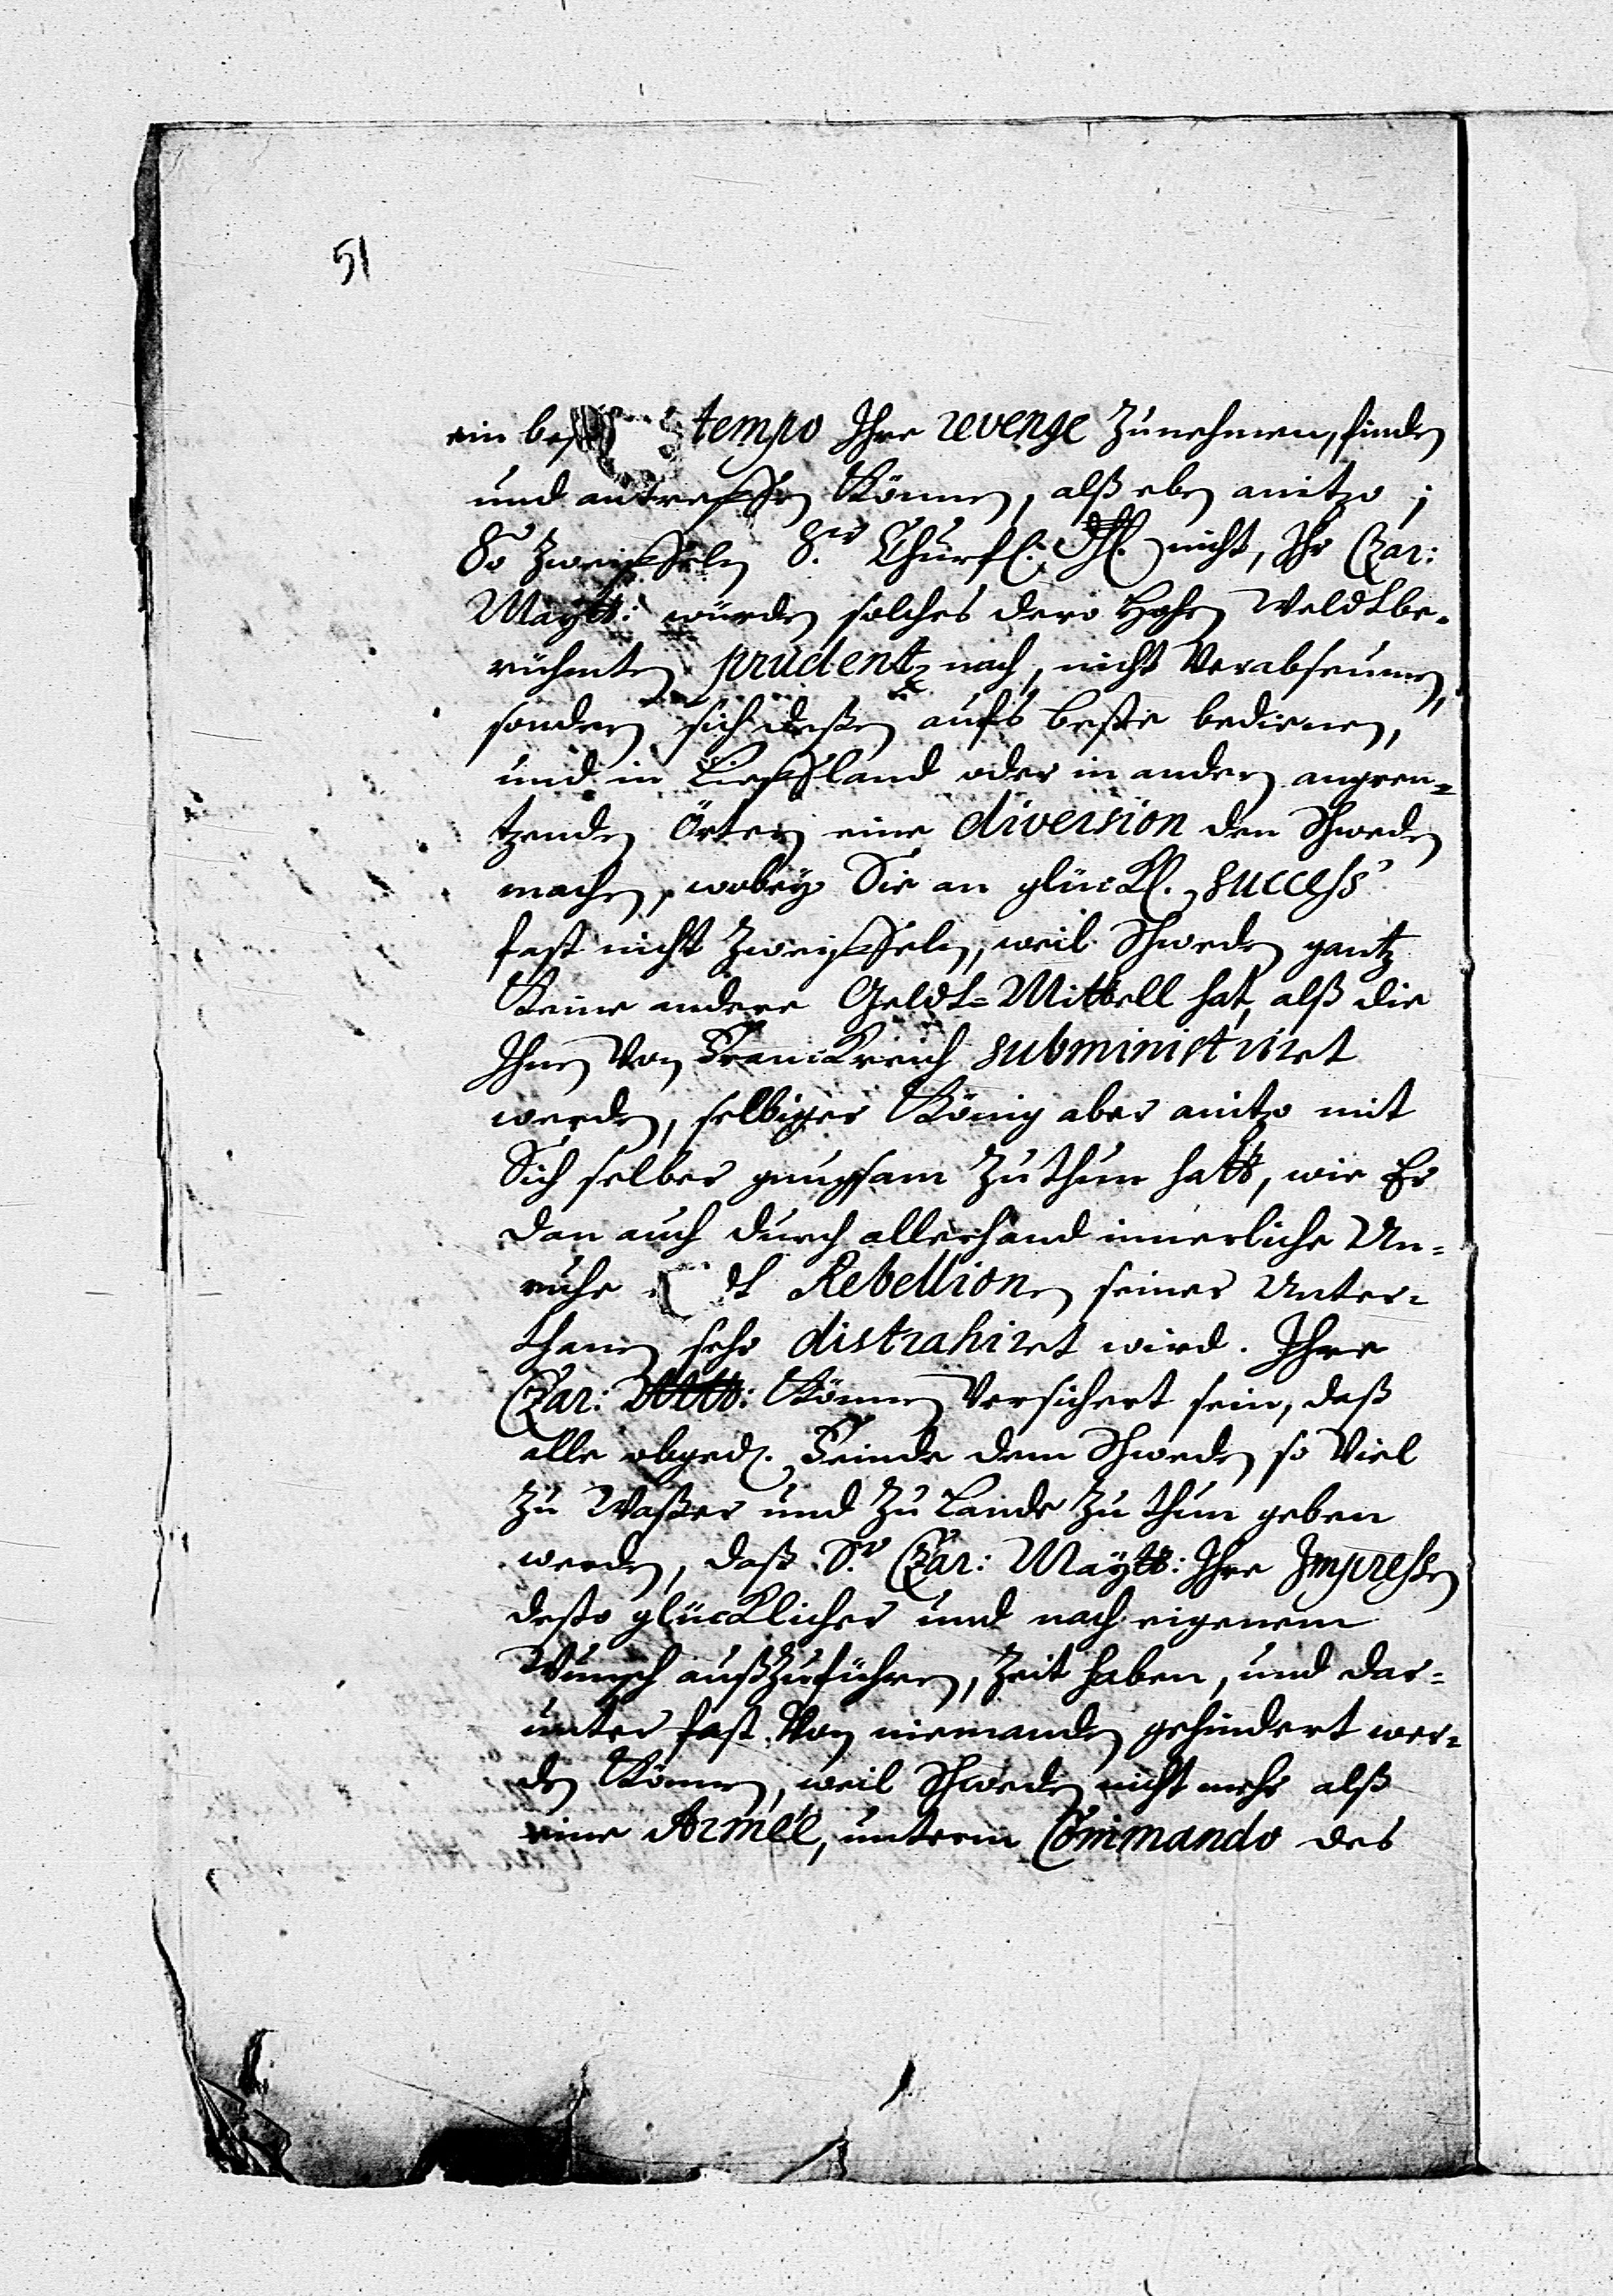 51
ein tempo Ihre revenge Zunehmen, finden
und antreffen Können, alß eben anitzo;
So Zweiffeln S.r Churfl: Dhl. nicht, Ihr Czar:
Maytt: würden solches dero Hohen Weldtbe-
rühmten prudentz nach, nicht Verabseumen,
sondern sich deßen aufs beste bedienen,
und in Lieffland oder in andern angren-
tzenden Örtern eine diversion den Schweden
machen, wobey Sie an glückl. success
fast nicht Zweiffeln, weil Schweden gantz
Keine andere Geldt-Mittell hat, alß die
Ihnen Von Franckreich subministriret
werden, selbiger König aber anitzo mit
Sich selber gnugsam Zuthun hatt, wie Er
dan auch durch allerhand innerliche Un-
ruhe Rebellionen seiner Unter-
thanen sehr distrahiret wird. Ihre
Czar: Maytt: Können Versichert sein, daß
alle obged. Feinde dem Schweden so Viel
Zu Waßer und Zu Lande Zu thun geben
werden, daß S.r Czar: Maytt: Ihre Impressen
desto glücklicher und nach eigenem
Wunsch außzuführen, Zeit haben, und dar-
unter fast Von niemanden gehindert wer-
den Können, weil Schweden nicht mehr alß
eine Armée, unterm Commando des